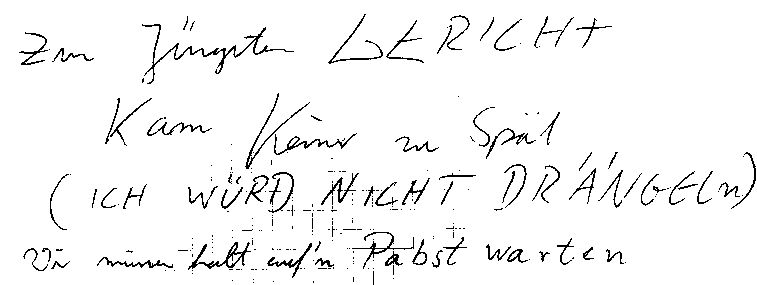 Zum Jüngsten GERICHT
Kam Keiner zu Spät
(ICH WÜRD NICHT DRÄNGELn)
Wir müssen halt auf'n Pabst warten